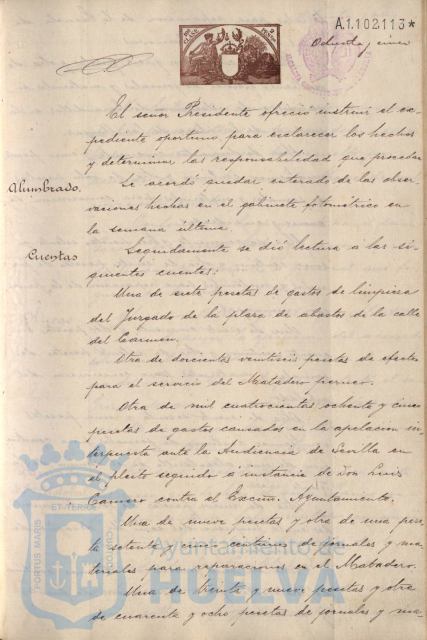 A.1.102113*
Ochenta y cinco
El señor Presidente ofreció instruir el ex-
pediente oportuno para esclarecer los hechos
y determinar las responsabilidad que proceda
Alumbrado.
Se acordó quedar enterado de las obser-
vaciones hechas en el gabinete fotométrico en
la semana última.
Cuentas
Seguidamente se dió lectura a las si-
guientes cuentas:
Una de siete pesetas de gastos de limpieza
del Juzgado de la plaza de abastos de la calle
del Carmen.
Otra de doscientas veintiseis pesetas de efectos
para el servicio del Matadero
Otra de mil cuatrocientas ochenta y cinco
pesetas de gastos causados en la apelacion in-
terpuesta ante la Audiencia de Sevilla en
el pleito seguido a instancia de Don Luis
contra el Excmo. Ayuntamiento.
Una de nueve pesetas y otra de una pese-
ta setenta y centimos de jornales y ma-
teriales para reparaciones en el Matadero.
Una de treinta y nueve pesetas y otra
de cuarenta y ocho pesetas de jornales y ma
PORTUS MARIS
ET TERRÆ
CUSTODIA
Ayuntamiento de
HUELVA